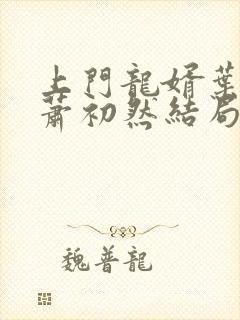 上門龍婿葉
蕭初然結局
魏普龍